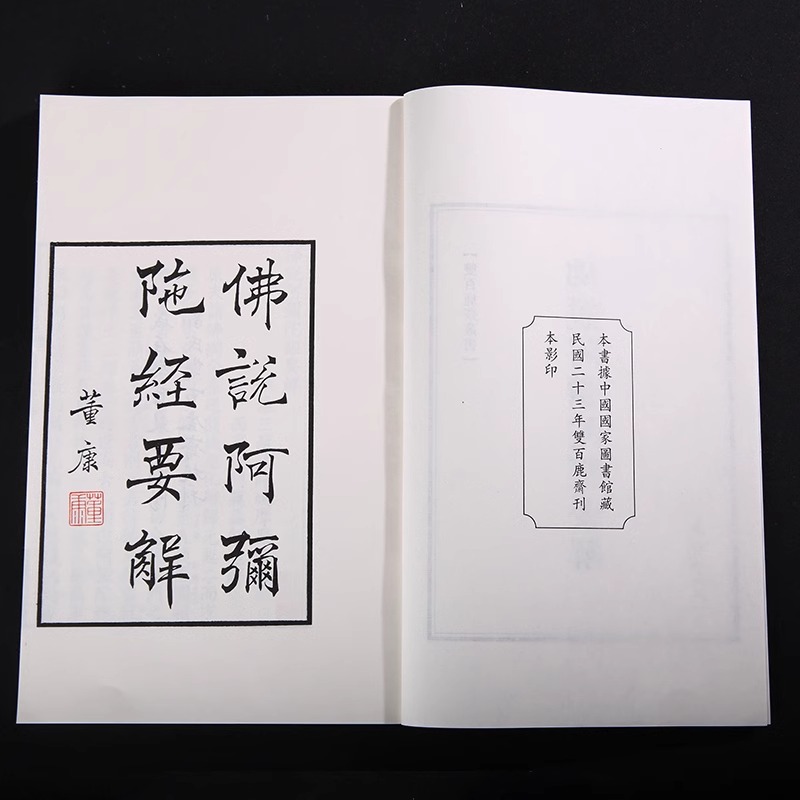 本書據中國國家圖書館藏
民國二十三年雙百鹿齋刊
本影印
佛說阿彌
陁經要解
董康
董康